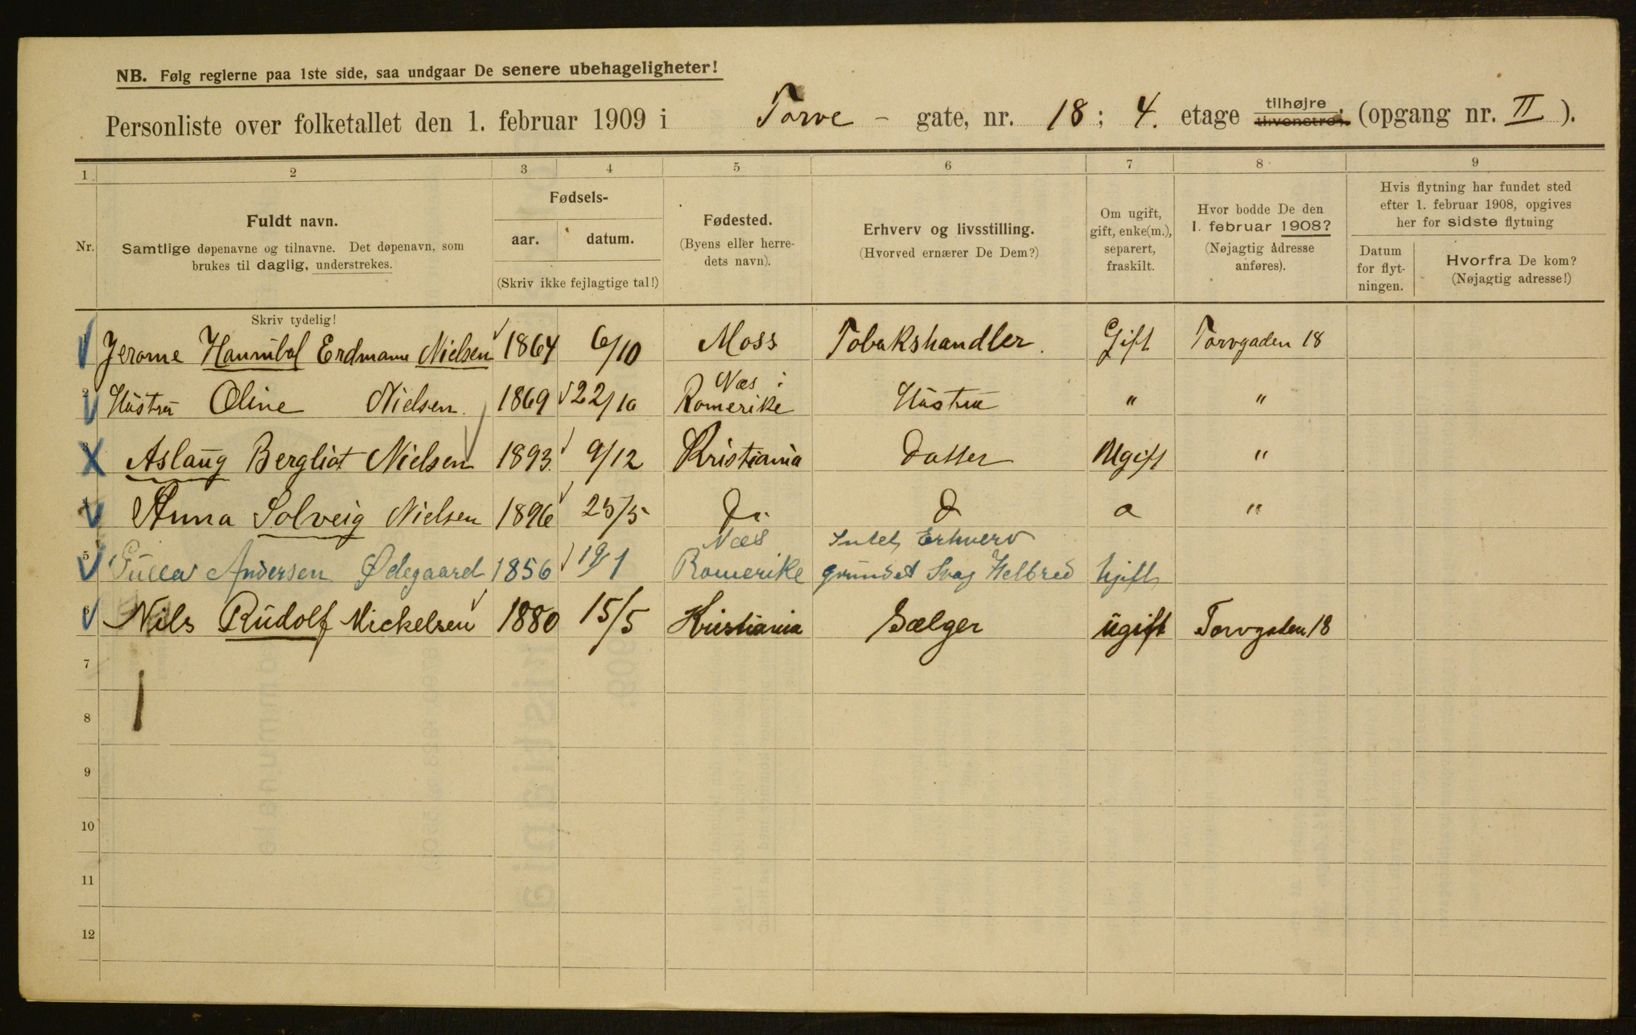 NB. Følg reglerne paa 1ste side, saa undgaar De senere ubehageligheter!
Personliste over folketallet den 1. februar 1909 i Torve - gate, nr. 18; 4. etage tilhøjre (opgang nr. II).
1 2 3 4 5 6 7 8 9
Nr.
Fuldt navn.
Samtlige døpenavne og tilnavne. Det døpenavn, som
brukes til daglig, understrekes.
Skriv tydelig!
Fødsels-
aar. datum.
(Skriv ikke fejlagtige tal!)
Fødested.
(Byens eller herre-
dets navn).
Erhverv og livsstilling.
(Hvorved ernærer De Dem?)
Om ugift,
gift, enke(m.),
separert,
fraskilt.
Hvor bodde De den
1. februar 1908?
(Nøjagtig adresse
anføres).
Hvis flytning har fundet sted
efter 1. februar 1908, opgives
her for sidste flytning
Datum
for flyt-
ningen.
Hvorfra De kom?
(Nøjagtig adresse!)
Jerome Hannibal Erdmann Nielsen 1864 6/10 Moss Tobakshandler. Gift Torvgaden 18
Hustru Oline Nielsen. 1869 22/10 Næs i Romerike Hustru " "
Aslaug Bergliot Nielsen 1893 9/12 Kristiania Datter Ugift "
Anna Solveig Nielsen 1896 25/5 Do. D "
5 Andersen Ødegaard 1856 19/1 Næs Romerike Intet Erhverv grundet Svag Helbred Ugift
6 Nils Rudolf Mickelsen 1880 15/5 Kristiania Sælger ugift Torvgaden 18
7
8
9
10
11
12